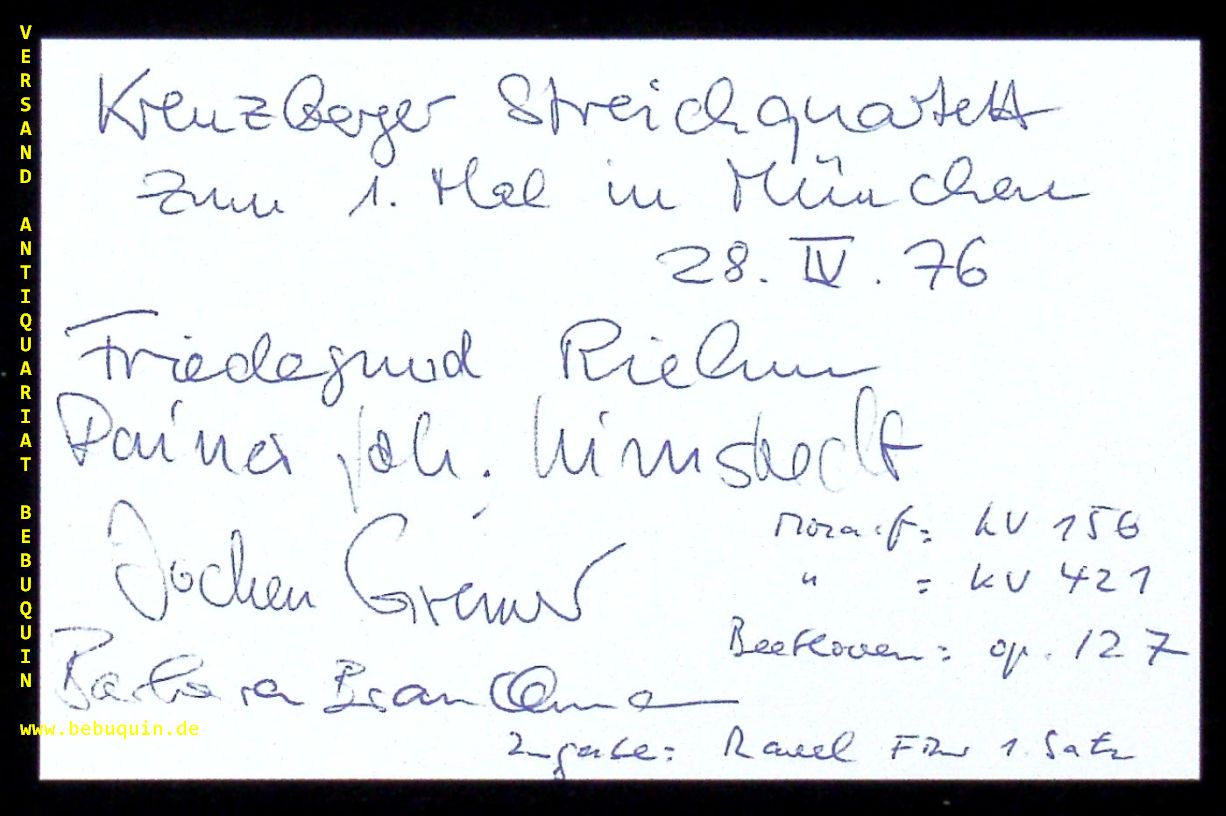 VERSAND ANTIQUARIAT BEBUQUIN
Kreuzberger Streichquartett
zum 1. Mal in München
28. IV. 76
Friedegund Riehm
Rainer Joh. Kimstedt
Jochen Greiner
Mozart: KV 156
" : KV 421
Beethoven: op. 127
Barbara Brauckmann
Zugabe: Ravel 1. Satz
www.bebuquin.de